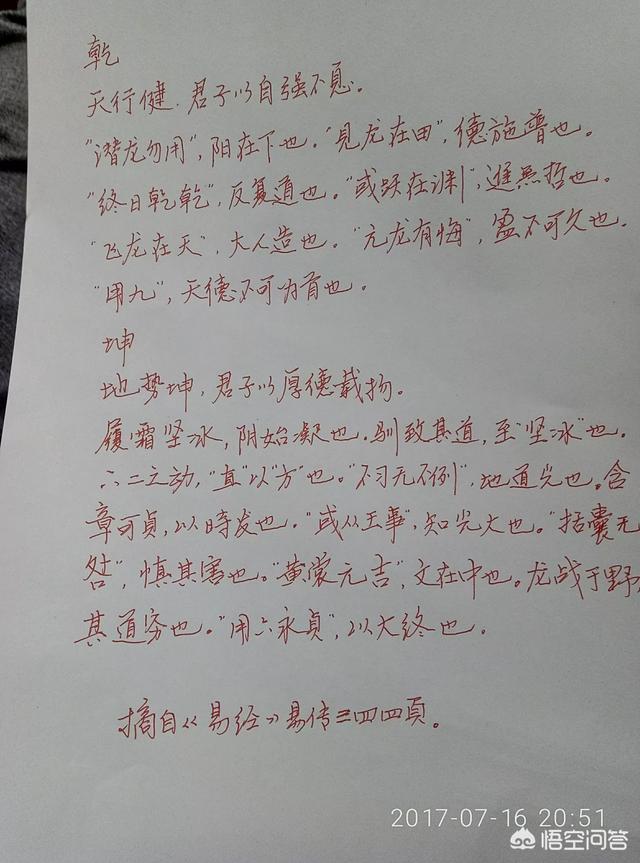 乾
天行健,君子以自强不息。
"潜龙勿用",阳在下也。"见龙在田",德施普也。
"终日乾乾",反复道也。"或跃在渊",進無咎也。
"飞龙在天",大人造也。"亢龙有悔",盈不可久也.
"用九",天德不可为首也。
坤
地势坤,君子以厚德载物。
履霜坚冰,阴始凝也.驯致其道,至"坚冰"也.
六二之动,"直"以"方"也。"不习无不利",地道光也。含
章可貞,以時发也。"或从王事",知光大也。"括囊无
咎",慎其害也。"黄裳元吉",文在中也。龙战于野,
其道穷也。"用六永貞",以大终也。
摘自《易经》易传三四四頁。
2017-07-16 20:51
悟空问答